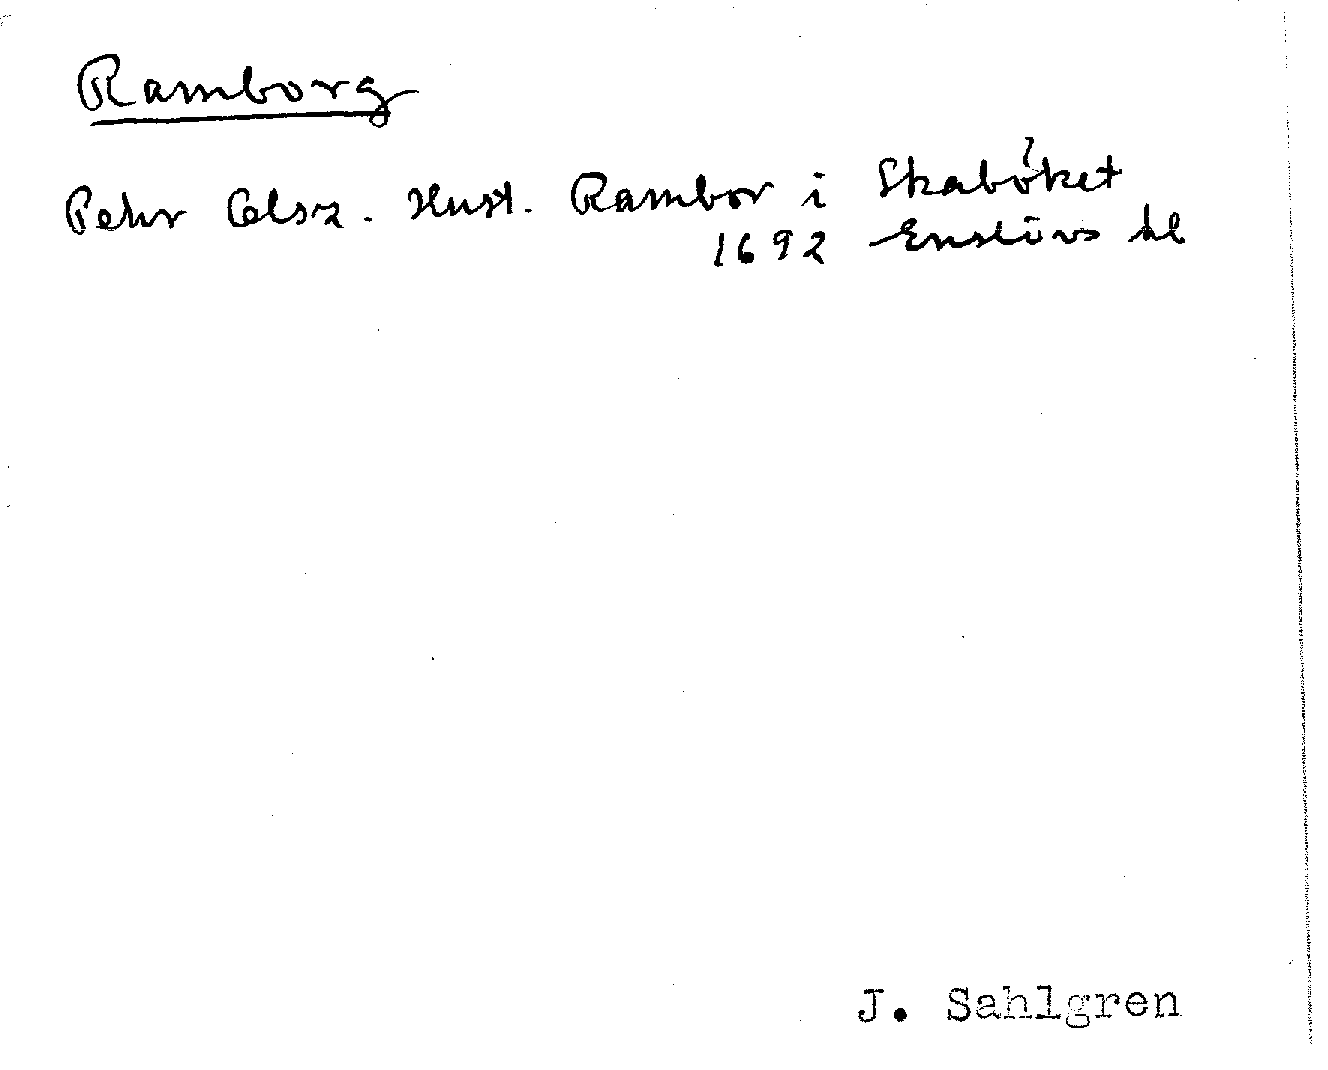 Ramborg
Pehr Olsz. Hust. Rambor i Skaböket
1692 Enslövs kl
J. Sahlgren